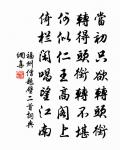 當初只欲轉頭銜
轉得頭銜轉不堪
何似仁王高閣上
倚欄閒唱望江南
福州僧題壁二首